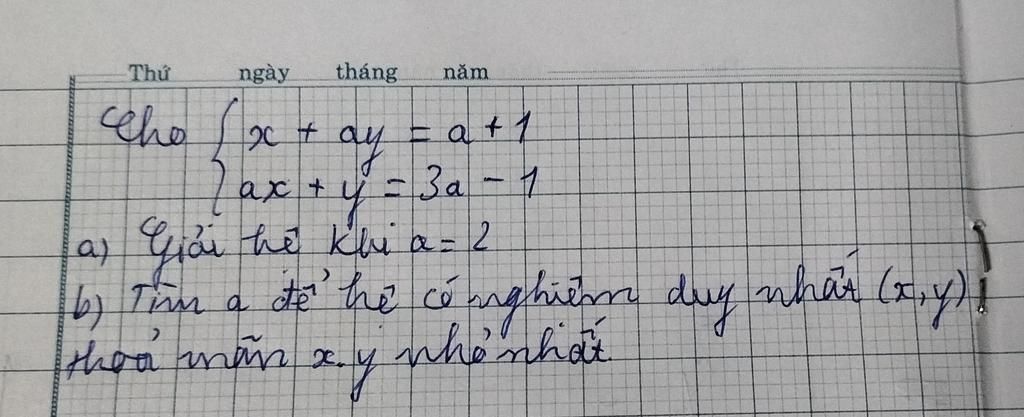 Thứ ngày tháng năm
Cho { x + ay = a + 1
ax + y = 3a - 1
a) Giải hệ khi a = 2
b) Tìm a để hệ có nghiệm duy nhất (x, y)
thoả mãn x.y nhỏ nhất